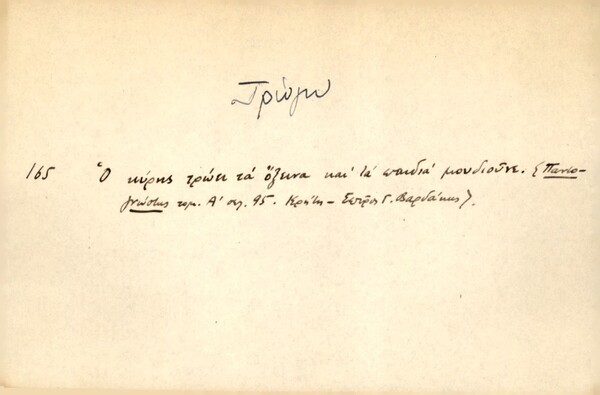 Τρώγω
165 Ὁ κύρης τρώει τά ὄξεινα καί τά παιδιά μουδιοῦνε. (Παντο-
γνώστης τομ. Α' σελ. 95. Κρήτη - Σπῦρος Γ. Βαρδάκης).